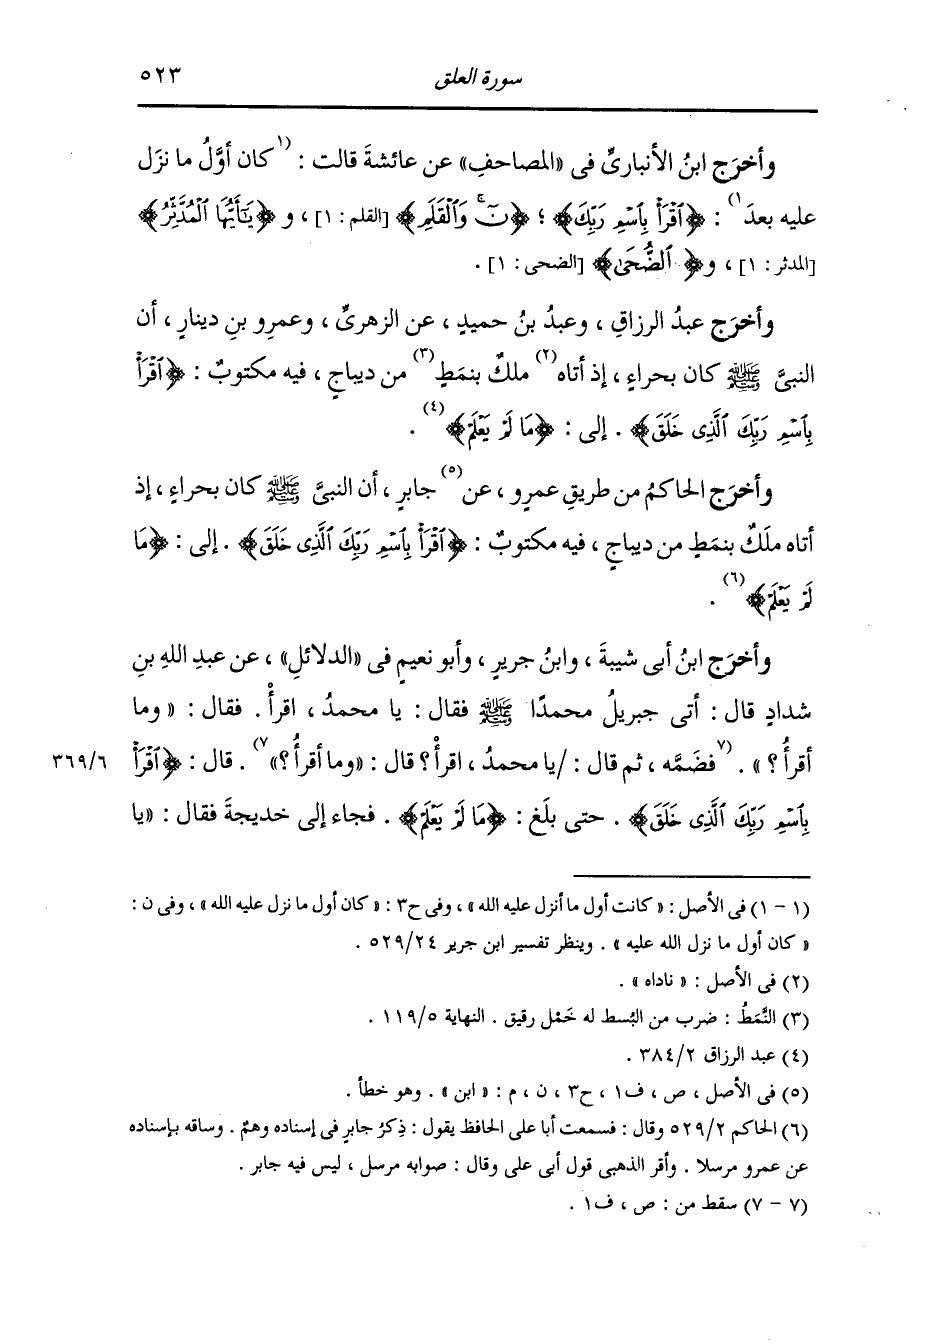 سورة العلق ٥٢٣
وأخرَج ابنُ الأنبارىِّ فى «المصاحفِ» عن عائشةَ قالت : (١كان أوَّلُ ما نزَل
عليه بعدَ١) : ﴿ٱقْرَأْ بِٱسْمِ رَبِّكَ﴾ ؛ ﴿نٓۚ وَٱلْقَلَمِ﴾ [القلم : ١] ، و ﴿يَٰٓأَيُّهَا ٱلْمُدَّثِّرُ﴾
[المدثر : ١] ، و﴿ ٱلضُّحَىٰ﴾ [الضحى : ١] .
وأخرَج عبدُ الرزاقِ ، وعبدُ بنُ حميدٍ ، عن الزهرىِّ ، وعمرِو بنِ دينارٍ ، أن
النبىَّ ﷺ كان بحراءٍ ، إذ أتاه(٢) ملَكٌ بنمَطٍ(٣) من ديباجٍ ، فيه مكتوبٌ : ﴿ٱقْرَأْ
بِٱسْمِ رَبِّكَ ٱلَّذِى خَلَقَ﴾ . إلى : ﴿مَا لَمْ يَعْلَمْ﴾(٤) .
وأخرَج الحاكمُ من طريقِ عمرٍو ، عن(٥) جابرٍ ، أن النبىَّ ﷺ كان بحراءٍ ، إذ
أتاه ملَكٌ بنمَطٍ من ديباجٍ ، فيه مكتوبٌ : ﴿ٱقْرَأْ بِٱسْمِ رَبِّكَ ٱلَّذِى خَلَقَ﴾ . إلى : ﴿مَا
لَمْ يَعْلَمْ﴾(٦) .
وأخرَج ابنُ أبى شيبةَ ، وابنُ جريرٍ ، وأبو نعيمٍ فى «الدلائلِ» ، عن عبدِ اللهِ بنِ
شدادٍ قال : أتى جبريلُ محمدًا ﷺ فقال : يا محمدُ ، اقرأْ . فقال : « وما
أقرأُ ؟ » . (٧فضَمَّه ، ثم قال : /يا محمدُ ، اقرأْ ؟ قال : «وما أقرأُ ؟»٧) . قال : ﴿ٱقْرَأْ ٣٦٩/٦
بِٱسْمِ رَبِّكَ ٱلَّذِى خَلَقَ﴾ . حتى بلَغ : ﴿مَا لَمْ يَعْلَمْ﴾ . فجاء إلى خديجةَ فقال : «يا
(١ - ١) فى الأصل : « كانت أول ما أنزل عليه الله » ، وفى ح٣ : « كان أول ما نزل عليه الله » ، وفى ن :
« كان أول ما نزل الله عليه » . وينظر تفسير ابن جرير ٥٢٩/٢٤ .
(٢) فى الأصل : « ناداه » .
(٣) النَّمَطُ : ضرب من البُسط له خَمْل رقيق . النهاية ١١٩/٥ .
(٤) عبد الرزاق ٣٨٤/٢ .
(٥) فى الأصل ، ص ، ف١ ، ح٣ ، ن ، م : « ابن » . وهو خطأ .
(٦) الحاكم ٥٢٩/٢ وقال : فسمعت أبا على الحافظ يقول : ذِكرُ جابرٍ فى إسناده وهمٌ . وساقه بإسناده
عن عمرو مرسلا . وأقر الذهبى قول أبى على وقال : صوابه مرسل ، ليس فيه جابر .
(٧ - ٧) سقط من : ص ، ف١ .